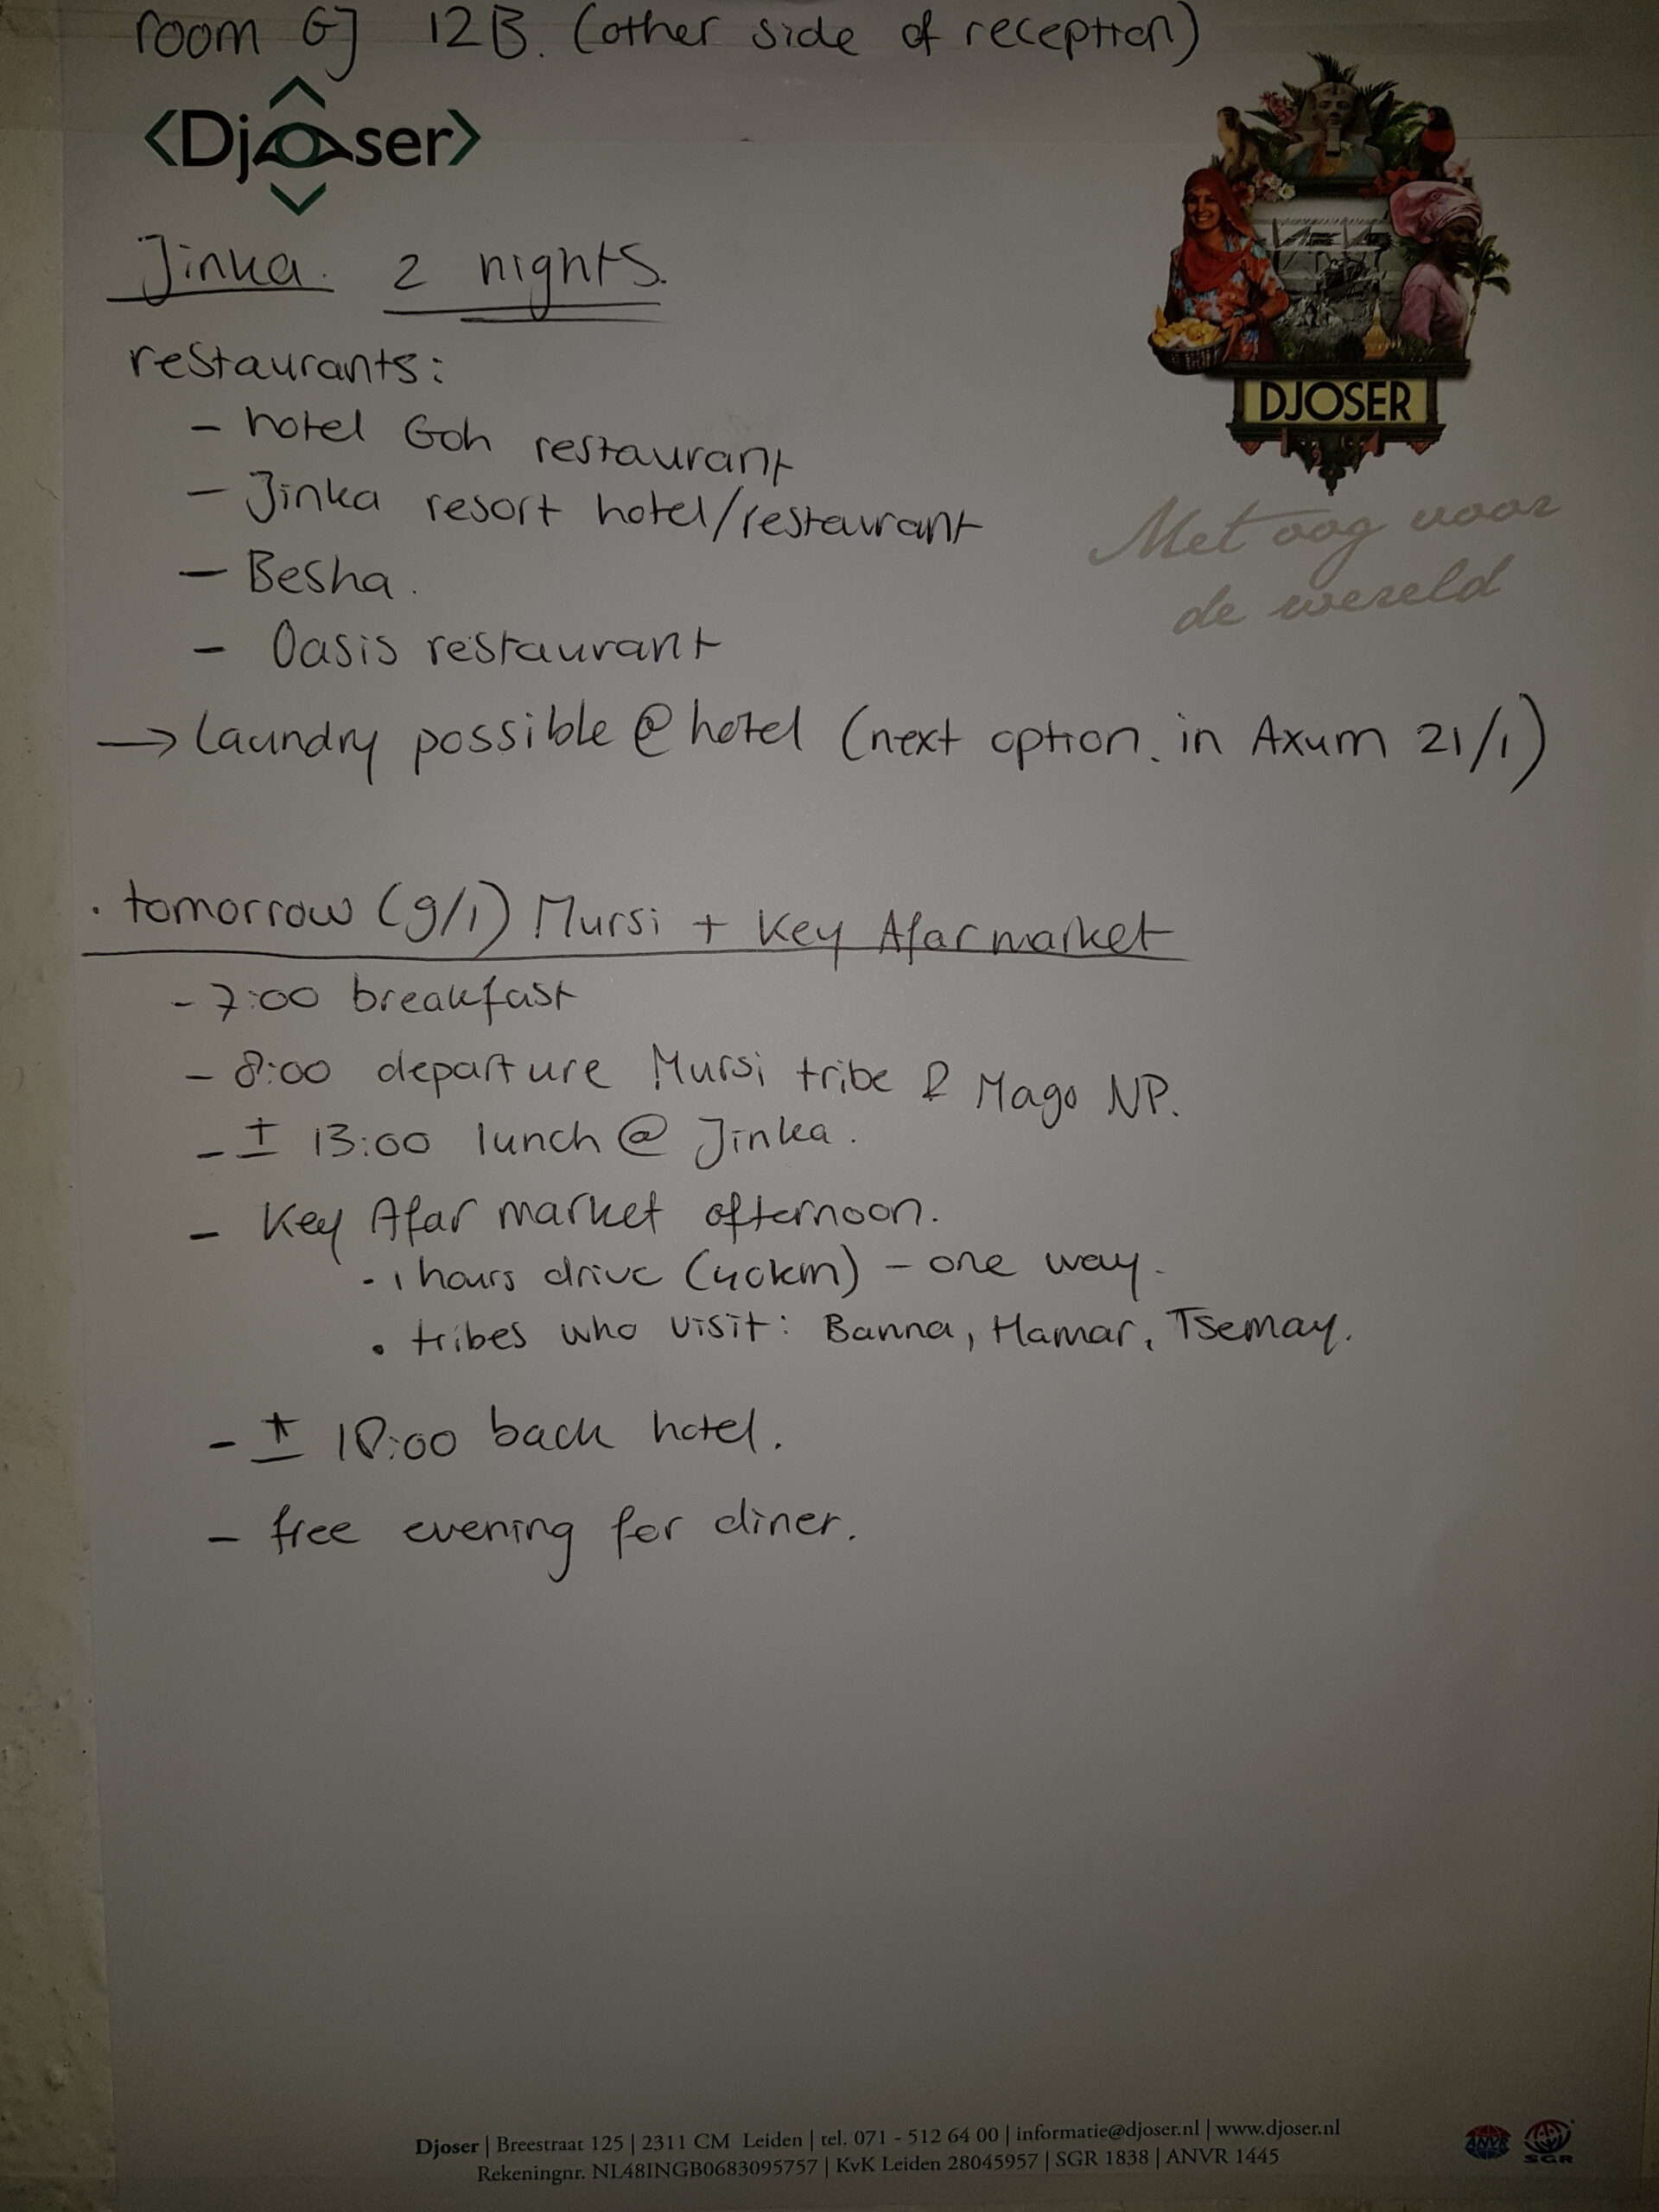 room GJ 12B. (other side of reception)
<Djoser>
Jinka. 2 nights.
restaurants:
- hotel Goh restaurant
- Jinka resort hotel/restaurant
- Besha.
- Oasis restaurant
DJOSER
Met oog voor
de wereld
→ Laundry possible @ hotel (next option. in Axum 21/1)
. tomorrow (9/1) Mursi + Key Afar market
- 7:00 breakfast
- 8:00 departure Mursi tribe & Mago NP.
- ± 13:00 lunch @ Jinka.
- Key Afar market afternoon.
- 1 hours drive (40km) - one way.
• tribes who visit: Banna, Hamar, Tsemay.
- ± 18:00 back hotel.
- free evening for diner.
Djoser | Breestraat 125 | 2311 CM Leiden | tel. 071 - 512 64 00 | informatie@djoser.nl | www.djoser.nl
Rekeningnr. NL48INGB0683095757 | KvK Leiden 28045957 | SGR 1838 | ANVR 1445
ANVR SGR